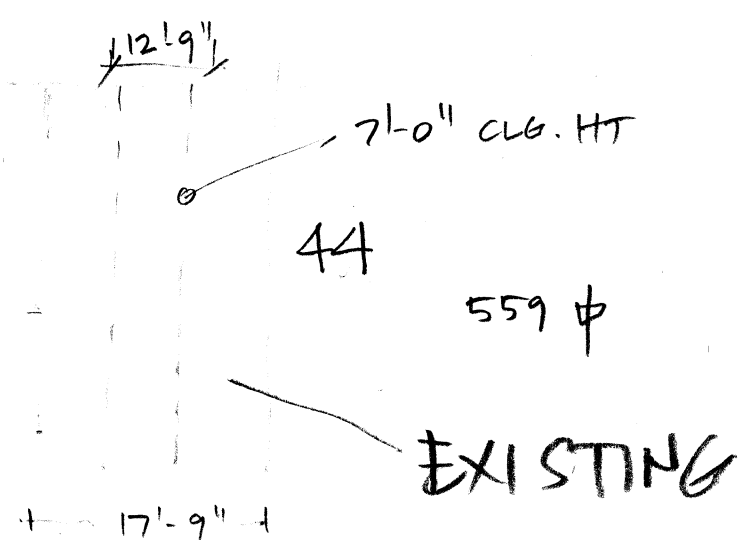 12'-9"
7'-0" CLG. HT
44
559 ⏍
EXISTING
17'-9"